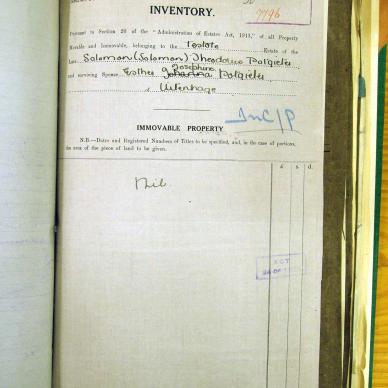 7796
INVENTORY.
Pursuant to Section 20 of the "Administration of Estates Act, 1913," of all Property
Movable and Immovable, belonging to the Testate Estate of the
Late Salomon (Solomon) Theodorus Potgieter
Josephina
and surviving Spouse Esther Johanna Potgieter
of Uitenhage
In C/P
IMMOVABLE PROPERTY
N.B.—Dates and Registered Numbers of Titles to be specified, and, in the case of portions,
the area of the piece of land to be given.
£ s. d.
Nil